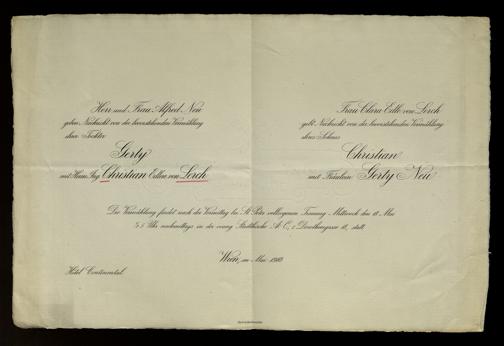 Herr und Frau Alfred Neu
geben Nachricht von der bevorstehenden Vermählung
ihrer Tochter
Gerty
mit Herrn Ing. Christian Edlen von Lorch
Frau Clara Edle von Lorch
gibt Nachricht von der bevorstehenden Vermählung
ihres Sohnes
Christian
mit Fräulein Gerty Neu
Die Vermählung findet nach der Vormittag bei St. Peter vollzogenen Trauung Mittwoch den 18. Mai
Uhr nachmittags in der evang. Stadtkirche A. C., Dorotheergasse 18, statt.
Wien, im Mai
Hotel Continental.